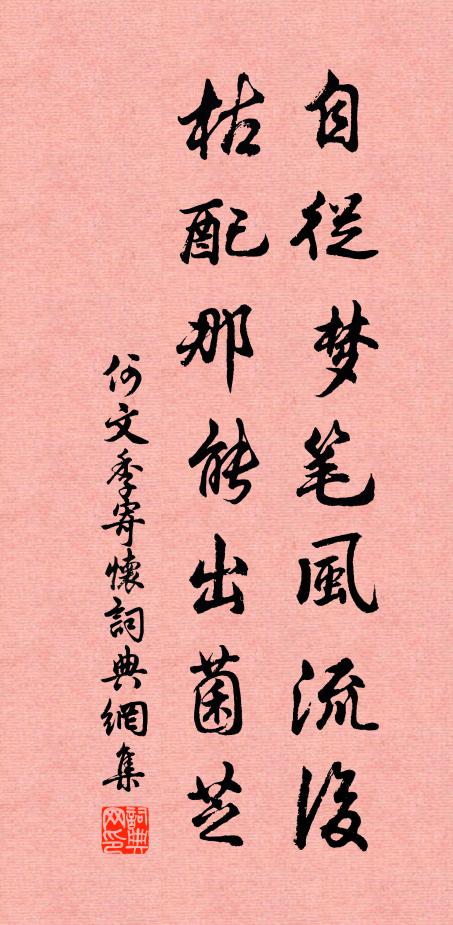 自從梦笔風流後
枯配那能出菌芝
何文季寄懷詞典網集
詞典
网印